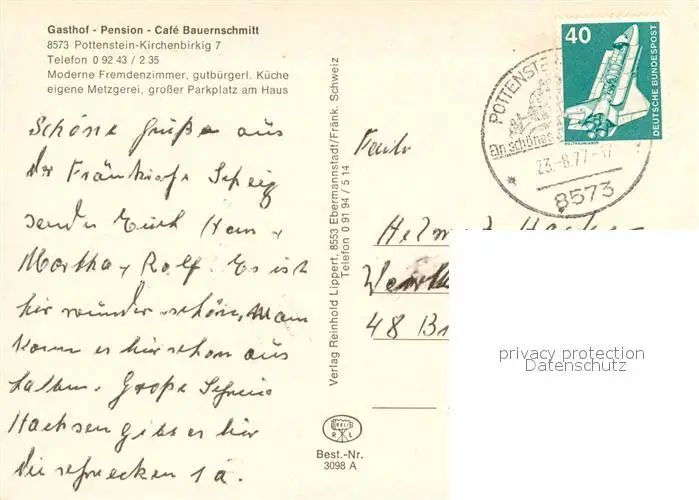 Gasthof - Pension - Café Bauernschmitt
8573 Pottenstein-Kirchenbirkig 7
Telefon 0 92 43 / 2 35
Moderne Fremdenzimmer, gutbürgerl. Küche
eigene Metzgerei, großer Parkplatz am Haus
Schöne Grüße aus
der Fränkische
senden Euch
Martha, Rolf. Es ist
hir wunder schön, Mann
kann es hir schon aus
halten. Große Schweine
Hachsen gibt es hir
die schmecken 1a.
Verlag Reinhold Lippert, 8553 Ebermannstadt/Fränk. Schweiz
Telefon 0 91 94 / 5 14
RELI
R L
Best.-Nr.
3098 A
40
DEUTSCHE BUNDESPOST
WELTRAUMLABOR
POTTENSTE
Ein schönes
23.-8.77-17
8573
Familie
Helmut
48 Bi
privacy protection
Datenschutz